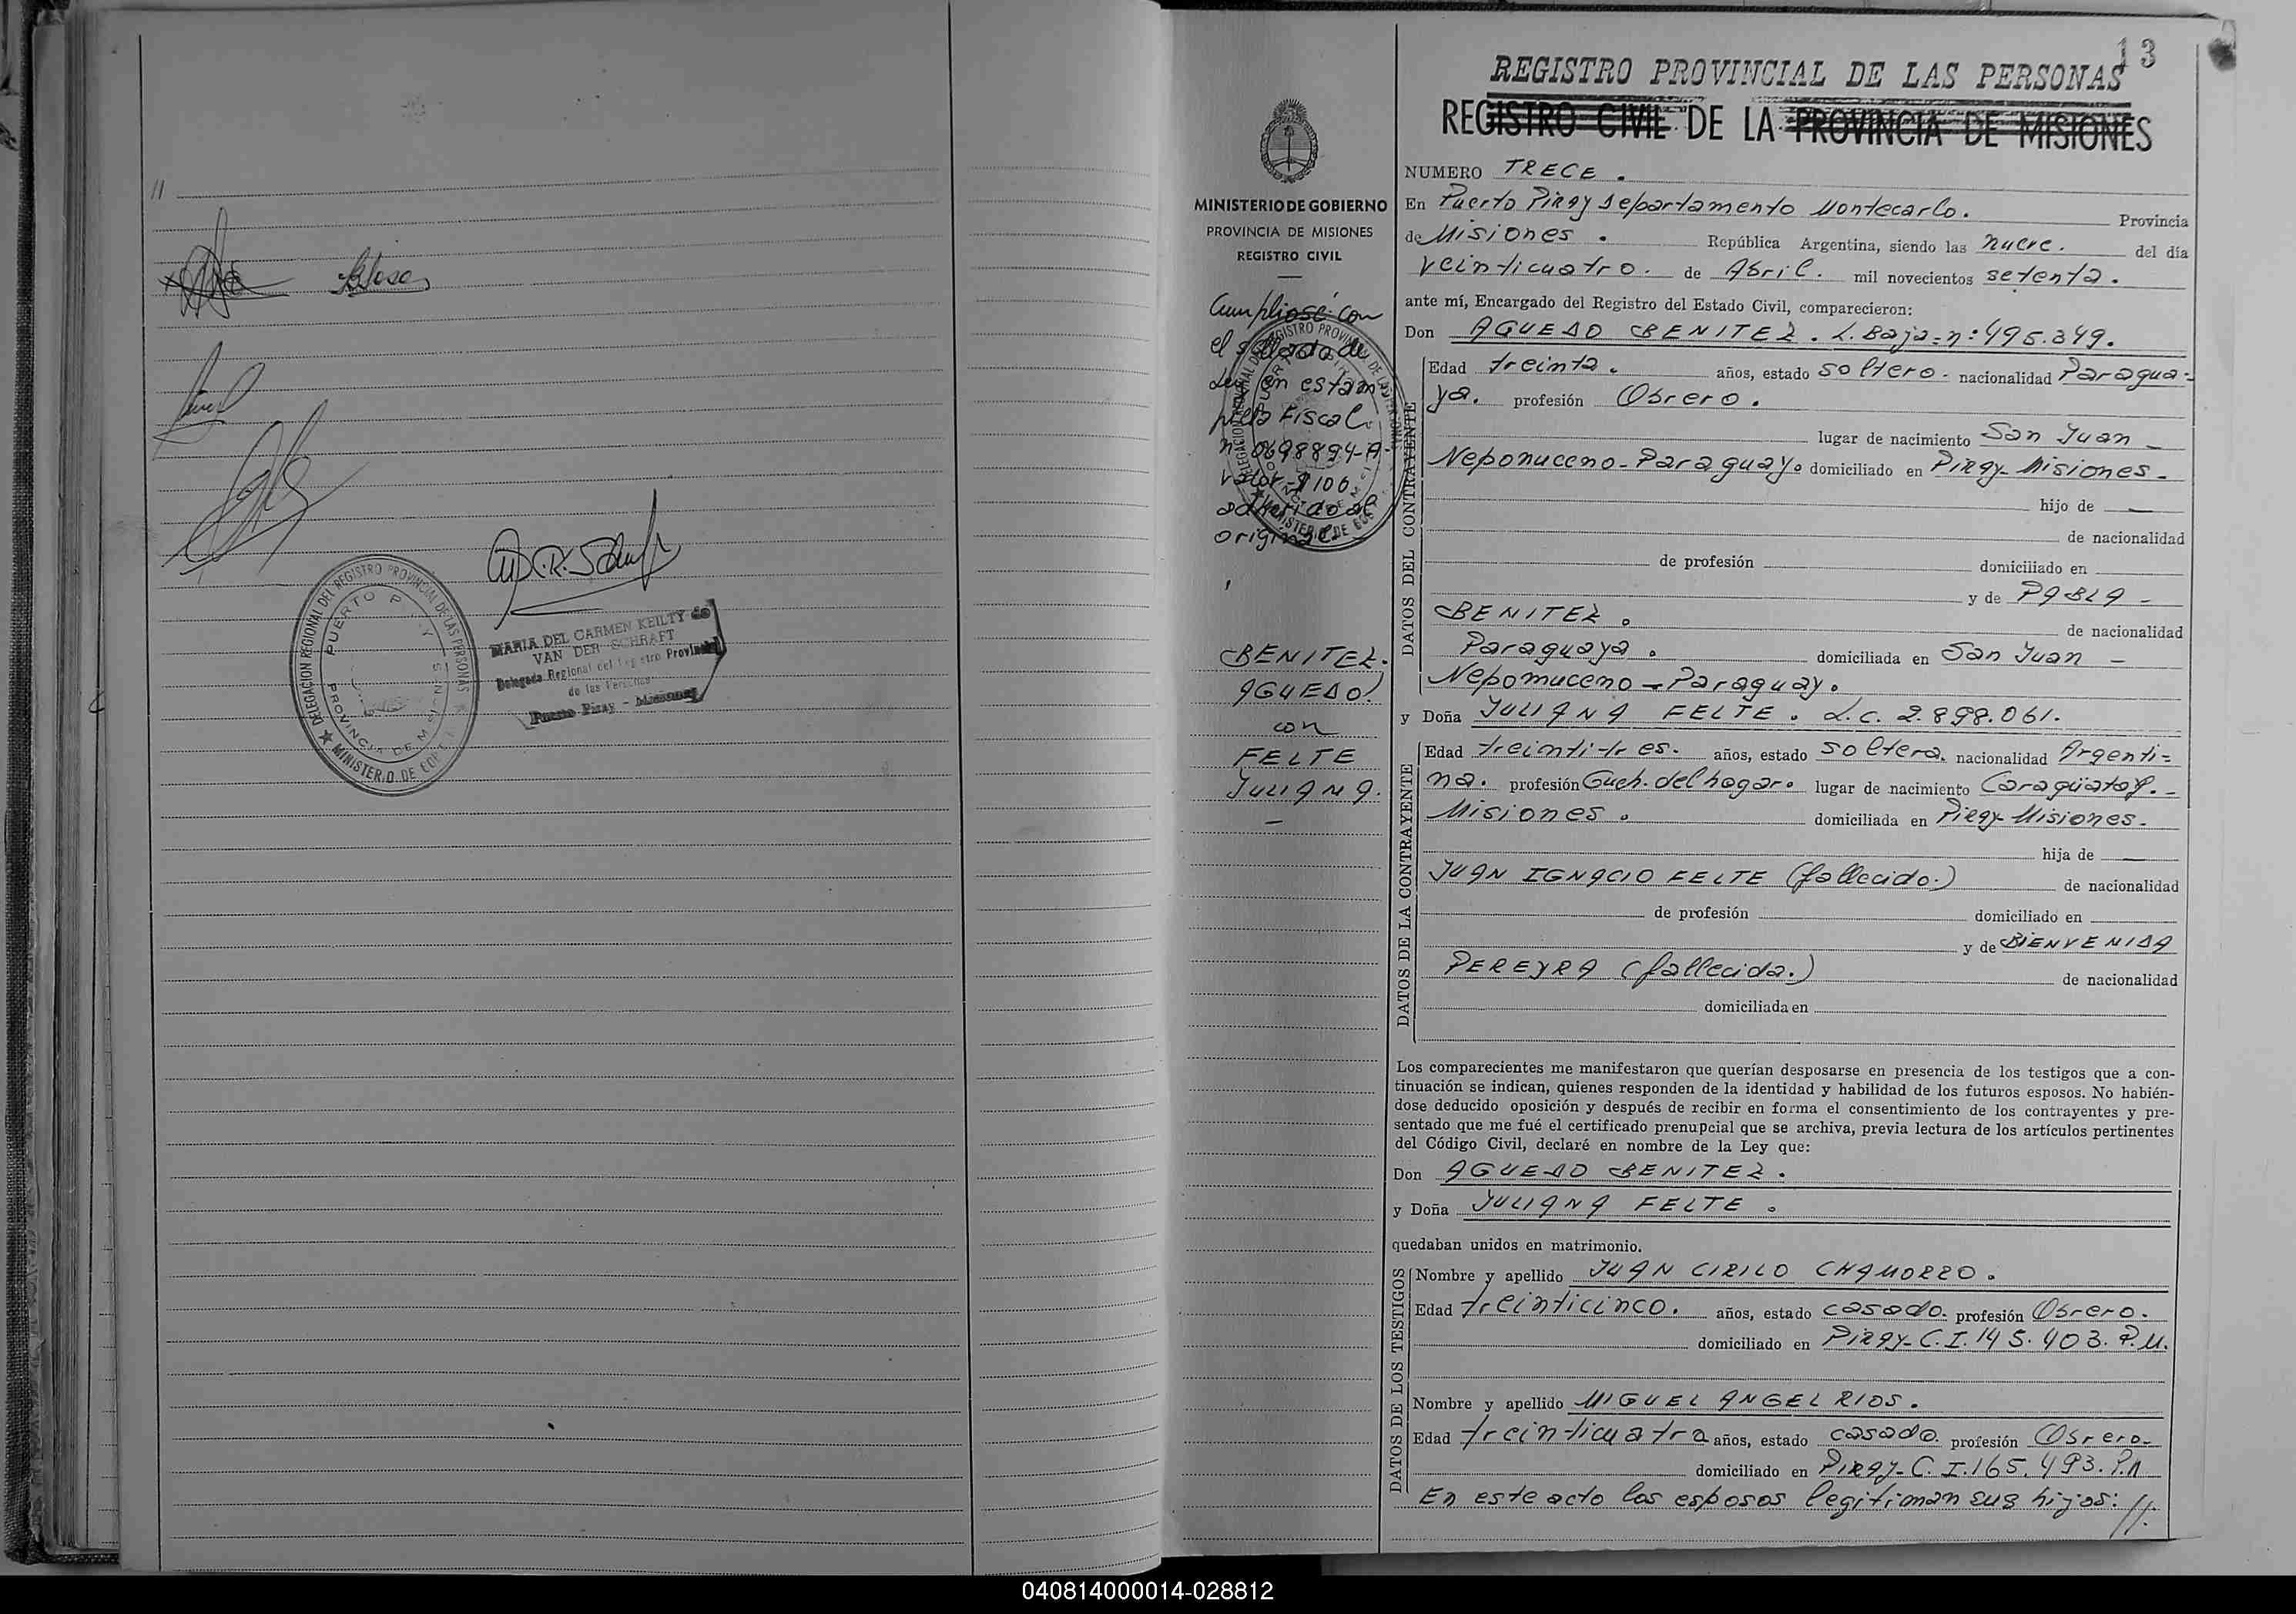 //
MARIA DEL CARMEN KEILTY de
VAN DER SCHRAFT
Delegada Regional del Registro Provincial
de las Personas
Puerto Piray - Misiones
DELEGACION REGIONAL DEL REGISTRO PROVINCIAL DE LAS PERSONAS
PUERTO P Y
PROVINCIA DE MISIONES
MINISTERIO DE GOB
13
REGISTRO PROVINCIAL DE LAS PERSONAS
REGISTRO CIVIL DE LA PROVINCIA DE MISIONES
MINISTERIO DE GOBIERNO
PROVINCIA DE MISIONES
REGISTRO CIVIL
Cumpliose con
el sellado de
Ley en estam
pilla Fiscal
nº 0698894-A-
valor-$100
adherido al
original
BENITEZ.
AGUEDO!
con
FELTE
JULIANA.
NUMERO TRECE.
En Puerto Piray departamento Montecarlo. Provincia
de Misiones. República Argentina, siendo las nueve. del día
veinticuatro. de Abril. mil novecientos setenta.
ante mí, Encargado del Registro del Estado Civil, comparecieron:
Don AGUEDO BENITEZ. L. Baja=n:495.349.
DATOS DEL CONTRAYENTE
Edad treinta. años, estado soltero- nacionalidad Paragua-
ya. profesión Obrero.
lugar de nacimiento San Juan -
Neponuceno-Paraguay. domiciliado en Piray-Misiones-
hijo de —
de nacionalidad
de profesión domiciliado en
y de PABLA -
BENITEZ. de nacionalidad
Paraguaya. domiciliada en San Juan -
Nepomuceno-Paraguay.
y Doña JULIANA FELTE. L.C. 2.898.061.
DATOS DE LA CONTRAYENTE
Edad treinti-tres. años, estado soltera. nacionalidad Argenti=
na. profesión Queh. del hogar. lugar de nacimiento Caragüatay.-
Misiones. domiciliada en Piray-Misiones-
hija de —
JUAN IGNACIO FELTE (fallecido.) de nacionalidad
de profesión domiciliado en
y de BIENVENIDA
PEREYRA (fallecida.) de nacionalidad
domiciliada en
Los comparecientes me manifestaron que querían desposarse en presencia de los testigos que a con-
tinuación se indican, quienes responden de la identidad y habilidad de los futuros esposos. No habién-
dose deducido oposición y después de recibir en forma el consentimiento de los contrayentes y pre-
sentado que me fué el certificado prenupcial que se archiva, previa lectura de los artículos pertinentes
del Código Civil, declaré en nombre de la Ley que:
Don AGUEDO BENITEZ.
y Doña JULIANA FELTE.
quedaban unidos en matrimonio.
DATOS DE LOS TESTIGOS
Nombre y apellido JUAN CIRILO CHAMORRO.
Edad treinticinco. años, estado casado. profesión Obrero.
domiciliado en Piray-C.I.145.403.P.M.
Nombre y apellido MIGUEL ANGEL RIOS.
Edad treinticuatro años, estado casado. profesión Obrero-
domiciliado en Piray-C.I.165.493.P.M
En este acto los esposos legitiman sus hijos: //.
040814000014-028812